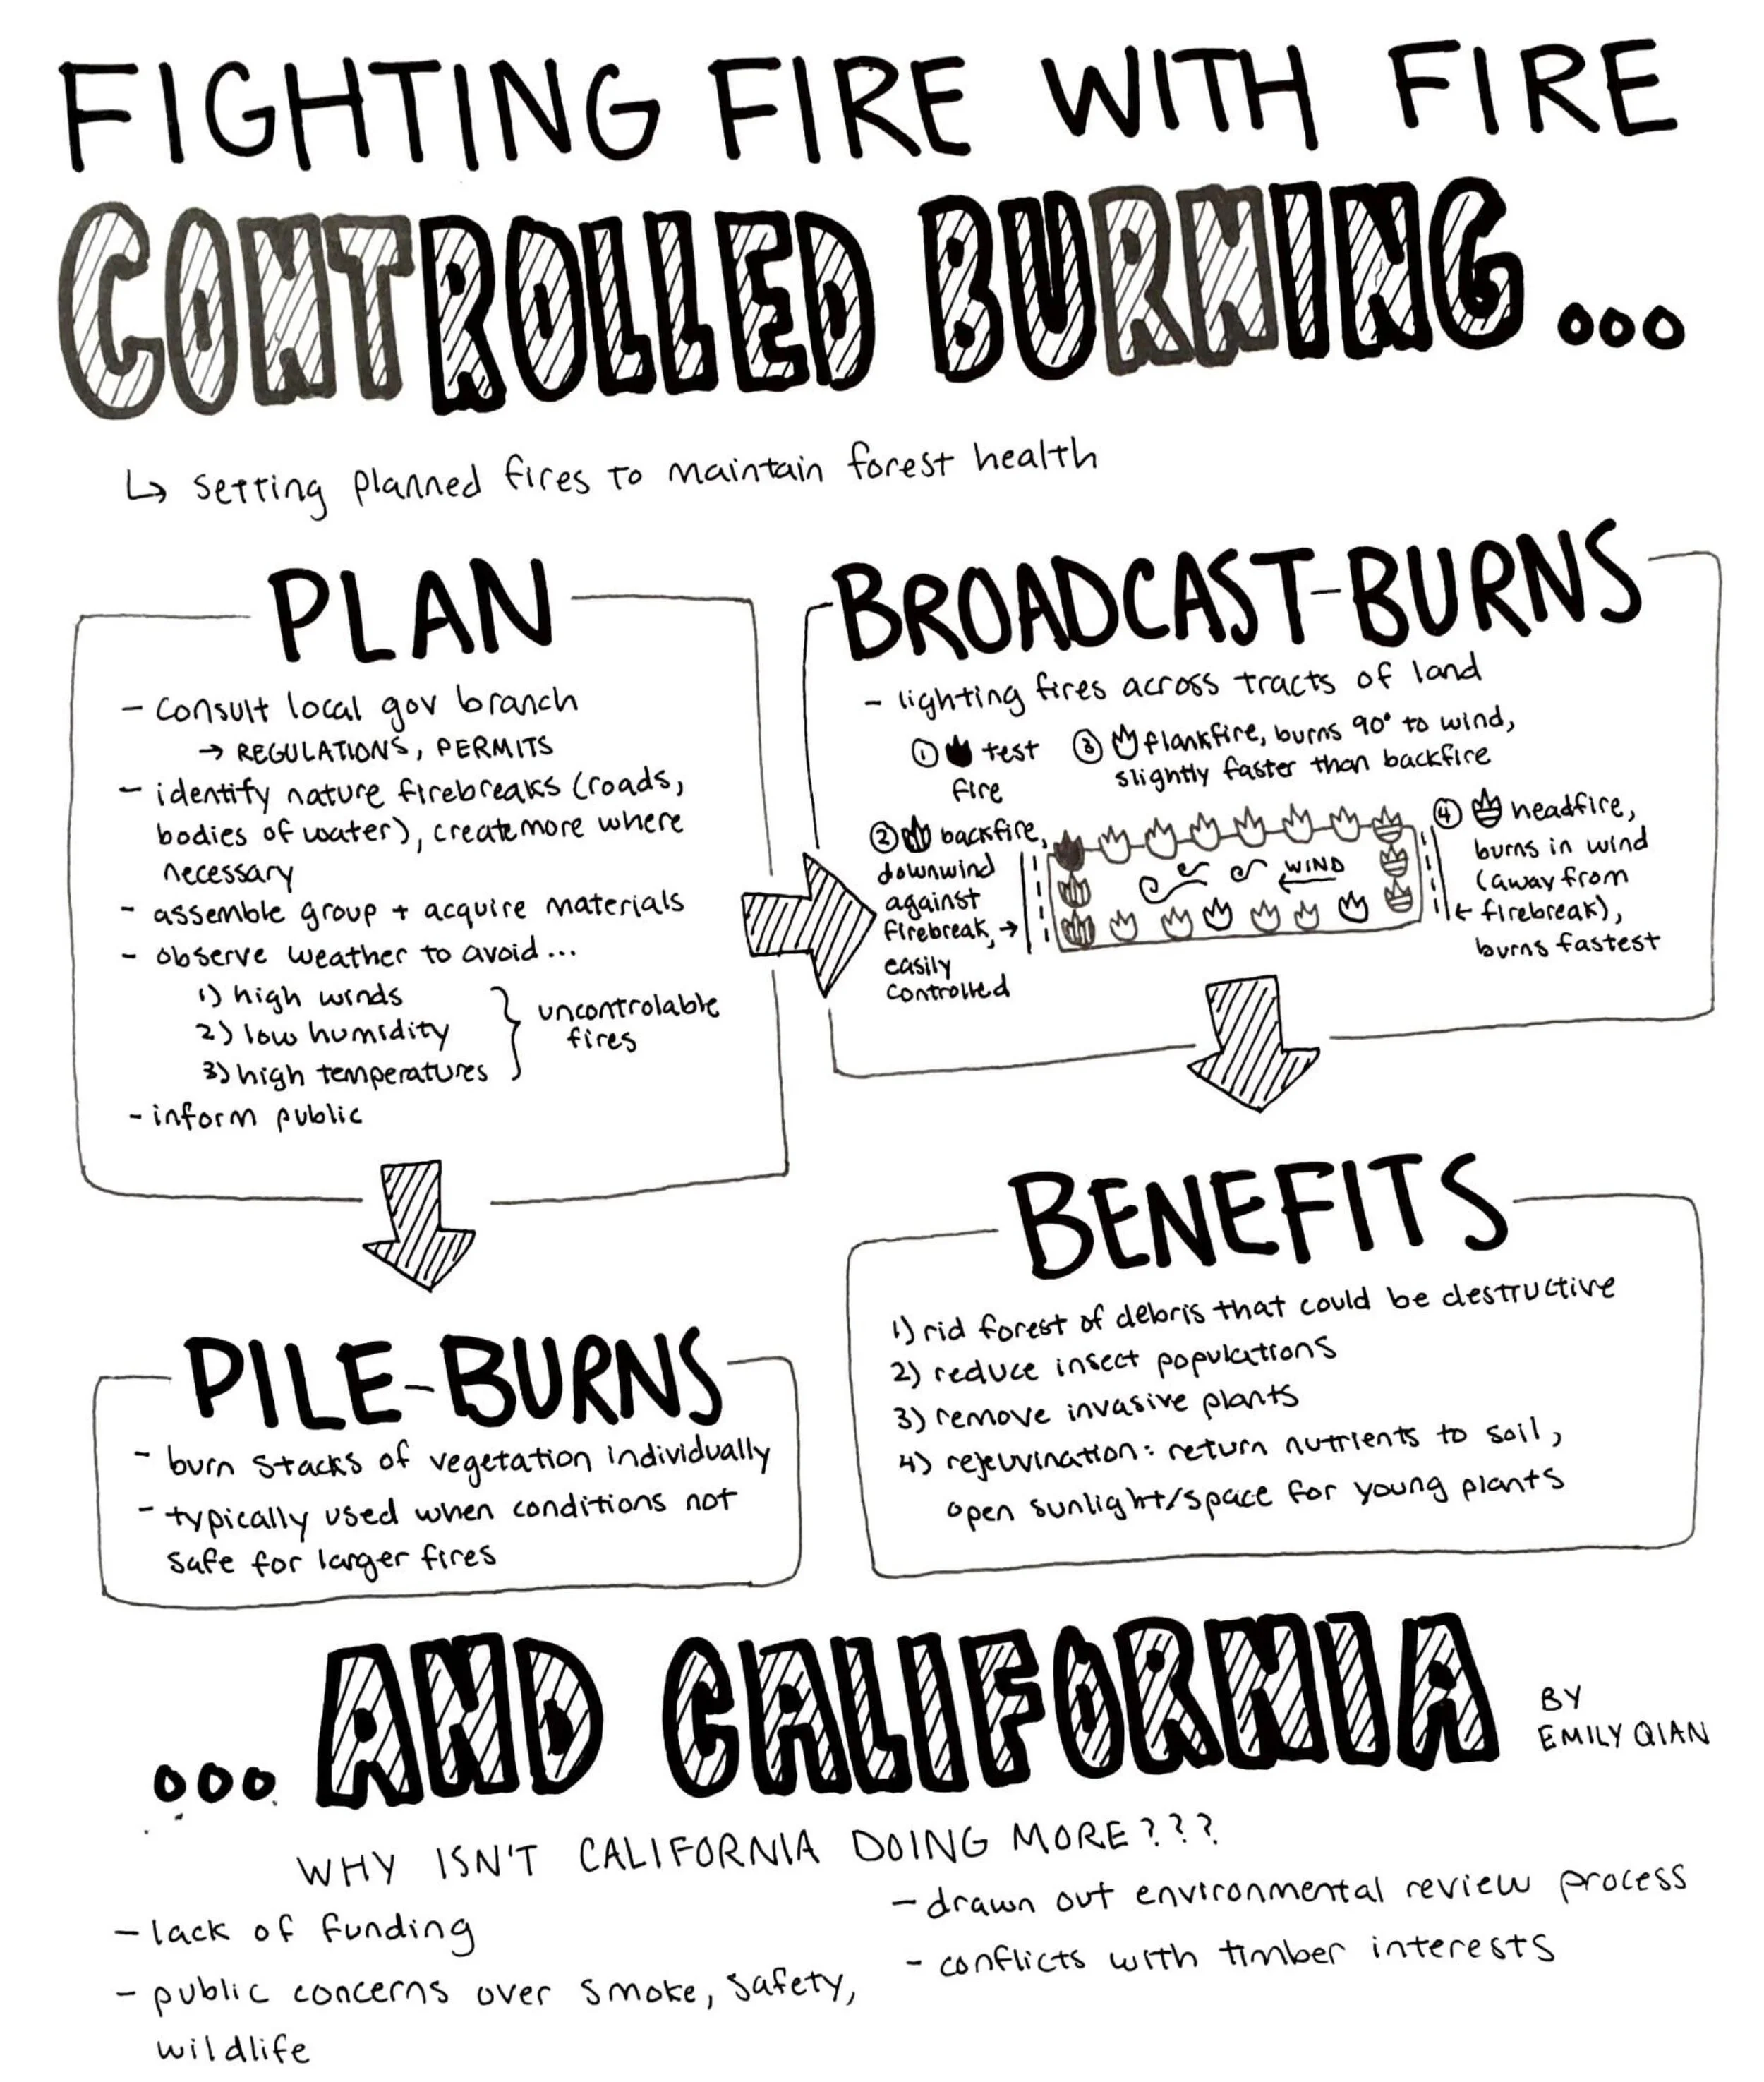 FIGHTING FIRE WITH FIRE
CONTROLLED BURNING...
↳ setting planned fires to maintain forest health
PLAN
- consult local gov branch
→ REGULATIONS, PERMITS
- identify nature firebreaks (roads,
bodies of water), create more where
necessary
- assemble group + acquire materials
- observe weather to avoid...
1) high winds
2) low humidity
3) high temperatures
} uncontrolable
fires
- inform public
BROADCAST-BURNS
- lighting fires across tracts of land
① test
fire
③ flankfire, burns 90° to wind,
slightly faster than backfire
② backfire,
downwind
against
firebreak, →
easily
controlled
WIND
←
④ headfire,
burns in wind
(away from
← firebreak),
burns fastest
PILE-BURNS
- burn stacks of vegetation individually
- typically used when conditions not
safe for larger fires
BENEFITS
1) rid forest of debris that could be destructive
2) reduce insect populations
3) remove invasive plants
4) rejeuvination: return nutrients to soil,
open sunlight/space for young plants
...AND CALIFORNIA
BY
EMILY QIAN
WHY ISN'T CALIFORNIA DOING MORE???
- lack of funding
- public concerns over smoke, safety,
wildlife
- drawn out environmental review process
- conflicts with timber interests